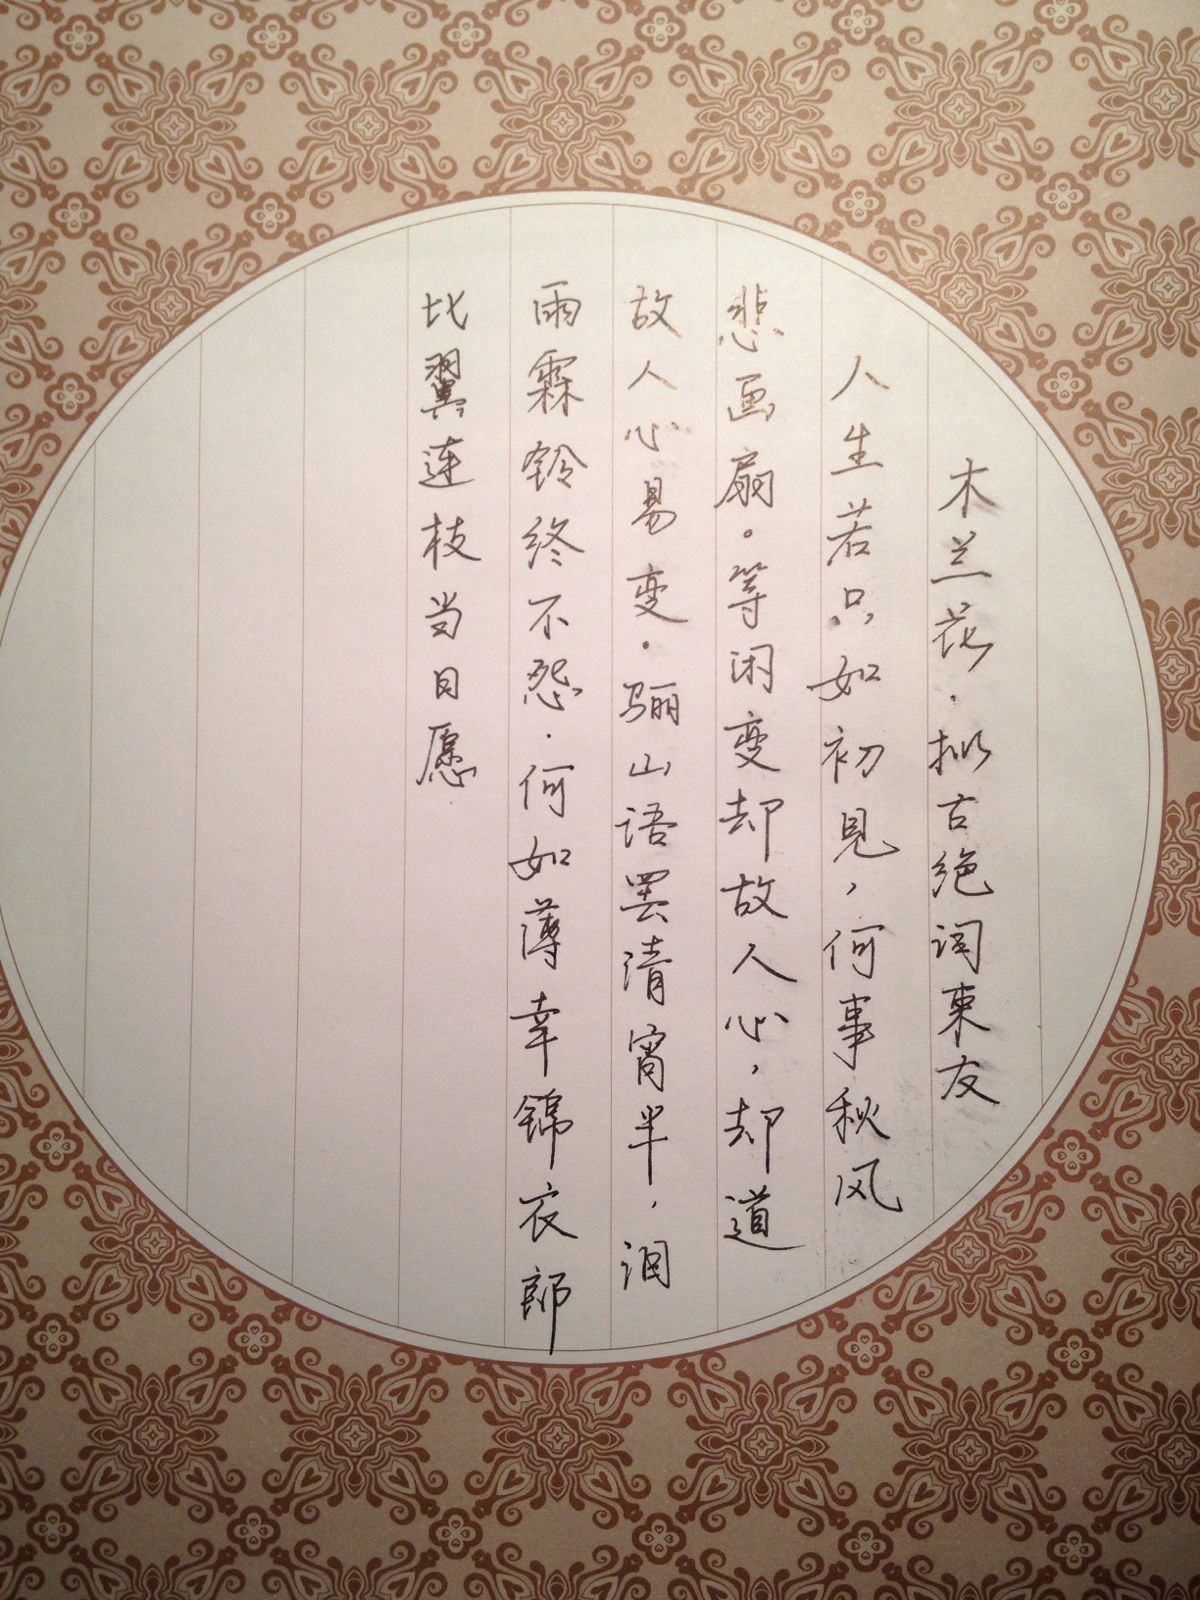 木兰花·拟古绝词柬友
人生若只如初見，何事秋风
悲画扇。等闲变却故人心，却道
故人心易变。骊山语罢清宵半，泪
雨霖铃终不怨。何如薄幸锦衣郎
比翼连枝当日愿